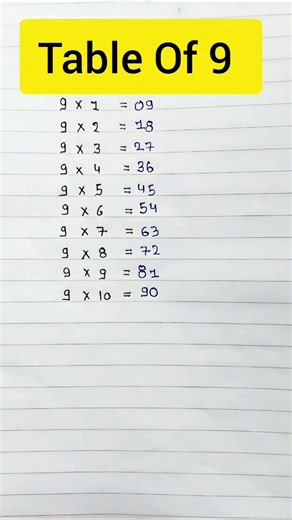 Table Of 9
9 x 1 = 09
9 x 2 = 18
9 x 3 = 27
9 x 4 = 36
9 x 5 = 45
9 x 6 = 54
9 x 7 = 63
9 x 8 = 72
9 x 9 = 81
9 x 10 = 90